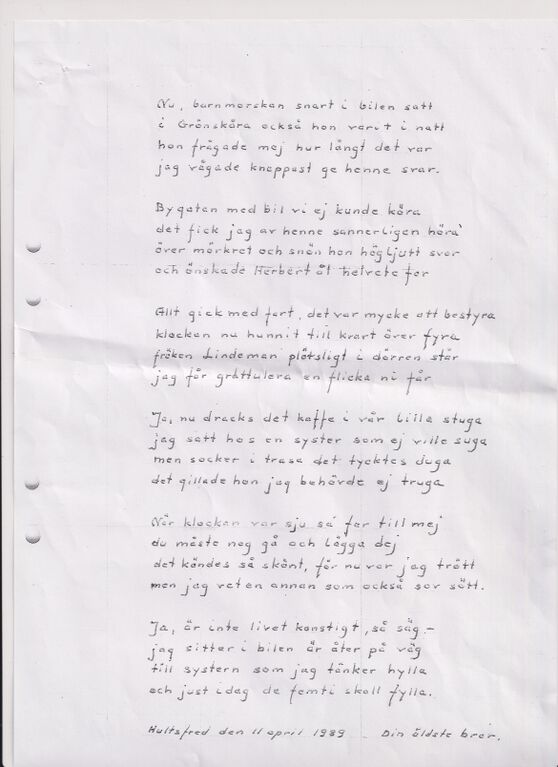 Nu, barnmorskan snart i bilen satt
i Grönskåra också hon varit i natt
hon frågade mej hur långt det var
jag vågade knappast ge henne svar.
Bygatan med bil vi ej kunde köra
det fick jag av henne sannerligen höra
över mörkret och snön hon högljutt svor
och önskade Herbert åt helvete for
Allt gick med fart, det var mycke att bestyra
klockan nu hunnit till kvart över fyra
fröken Lindeman plötsligt i dörren står
jag får grattulera en flicka ni får
Ja, nu dracks det kaffe i vår lilla stuga
jag satt hos en syster som ej ville suga
men socker i trasa det tycktes duga
det gillade hon jag behövde ej truga
När klockan var sju sa far till mej
du måste nog gå och lägga dej
det kändes så skönt, för nu var jag trött
men jag vet en annan som också sov sött.
Ja, är inte livet konstigt, så säg –
jag sitter i bilen är åter på väg
till systern som jag tänker hylla
och just idag de femti skall fylla.
Hultsfred den 11 april 1989 – Din äldste bror.